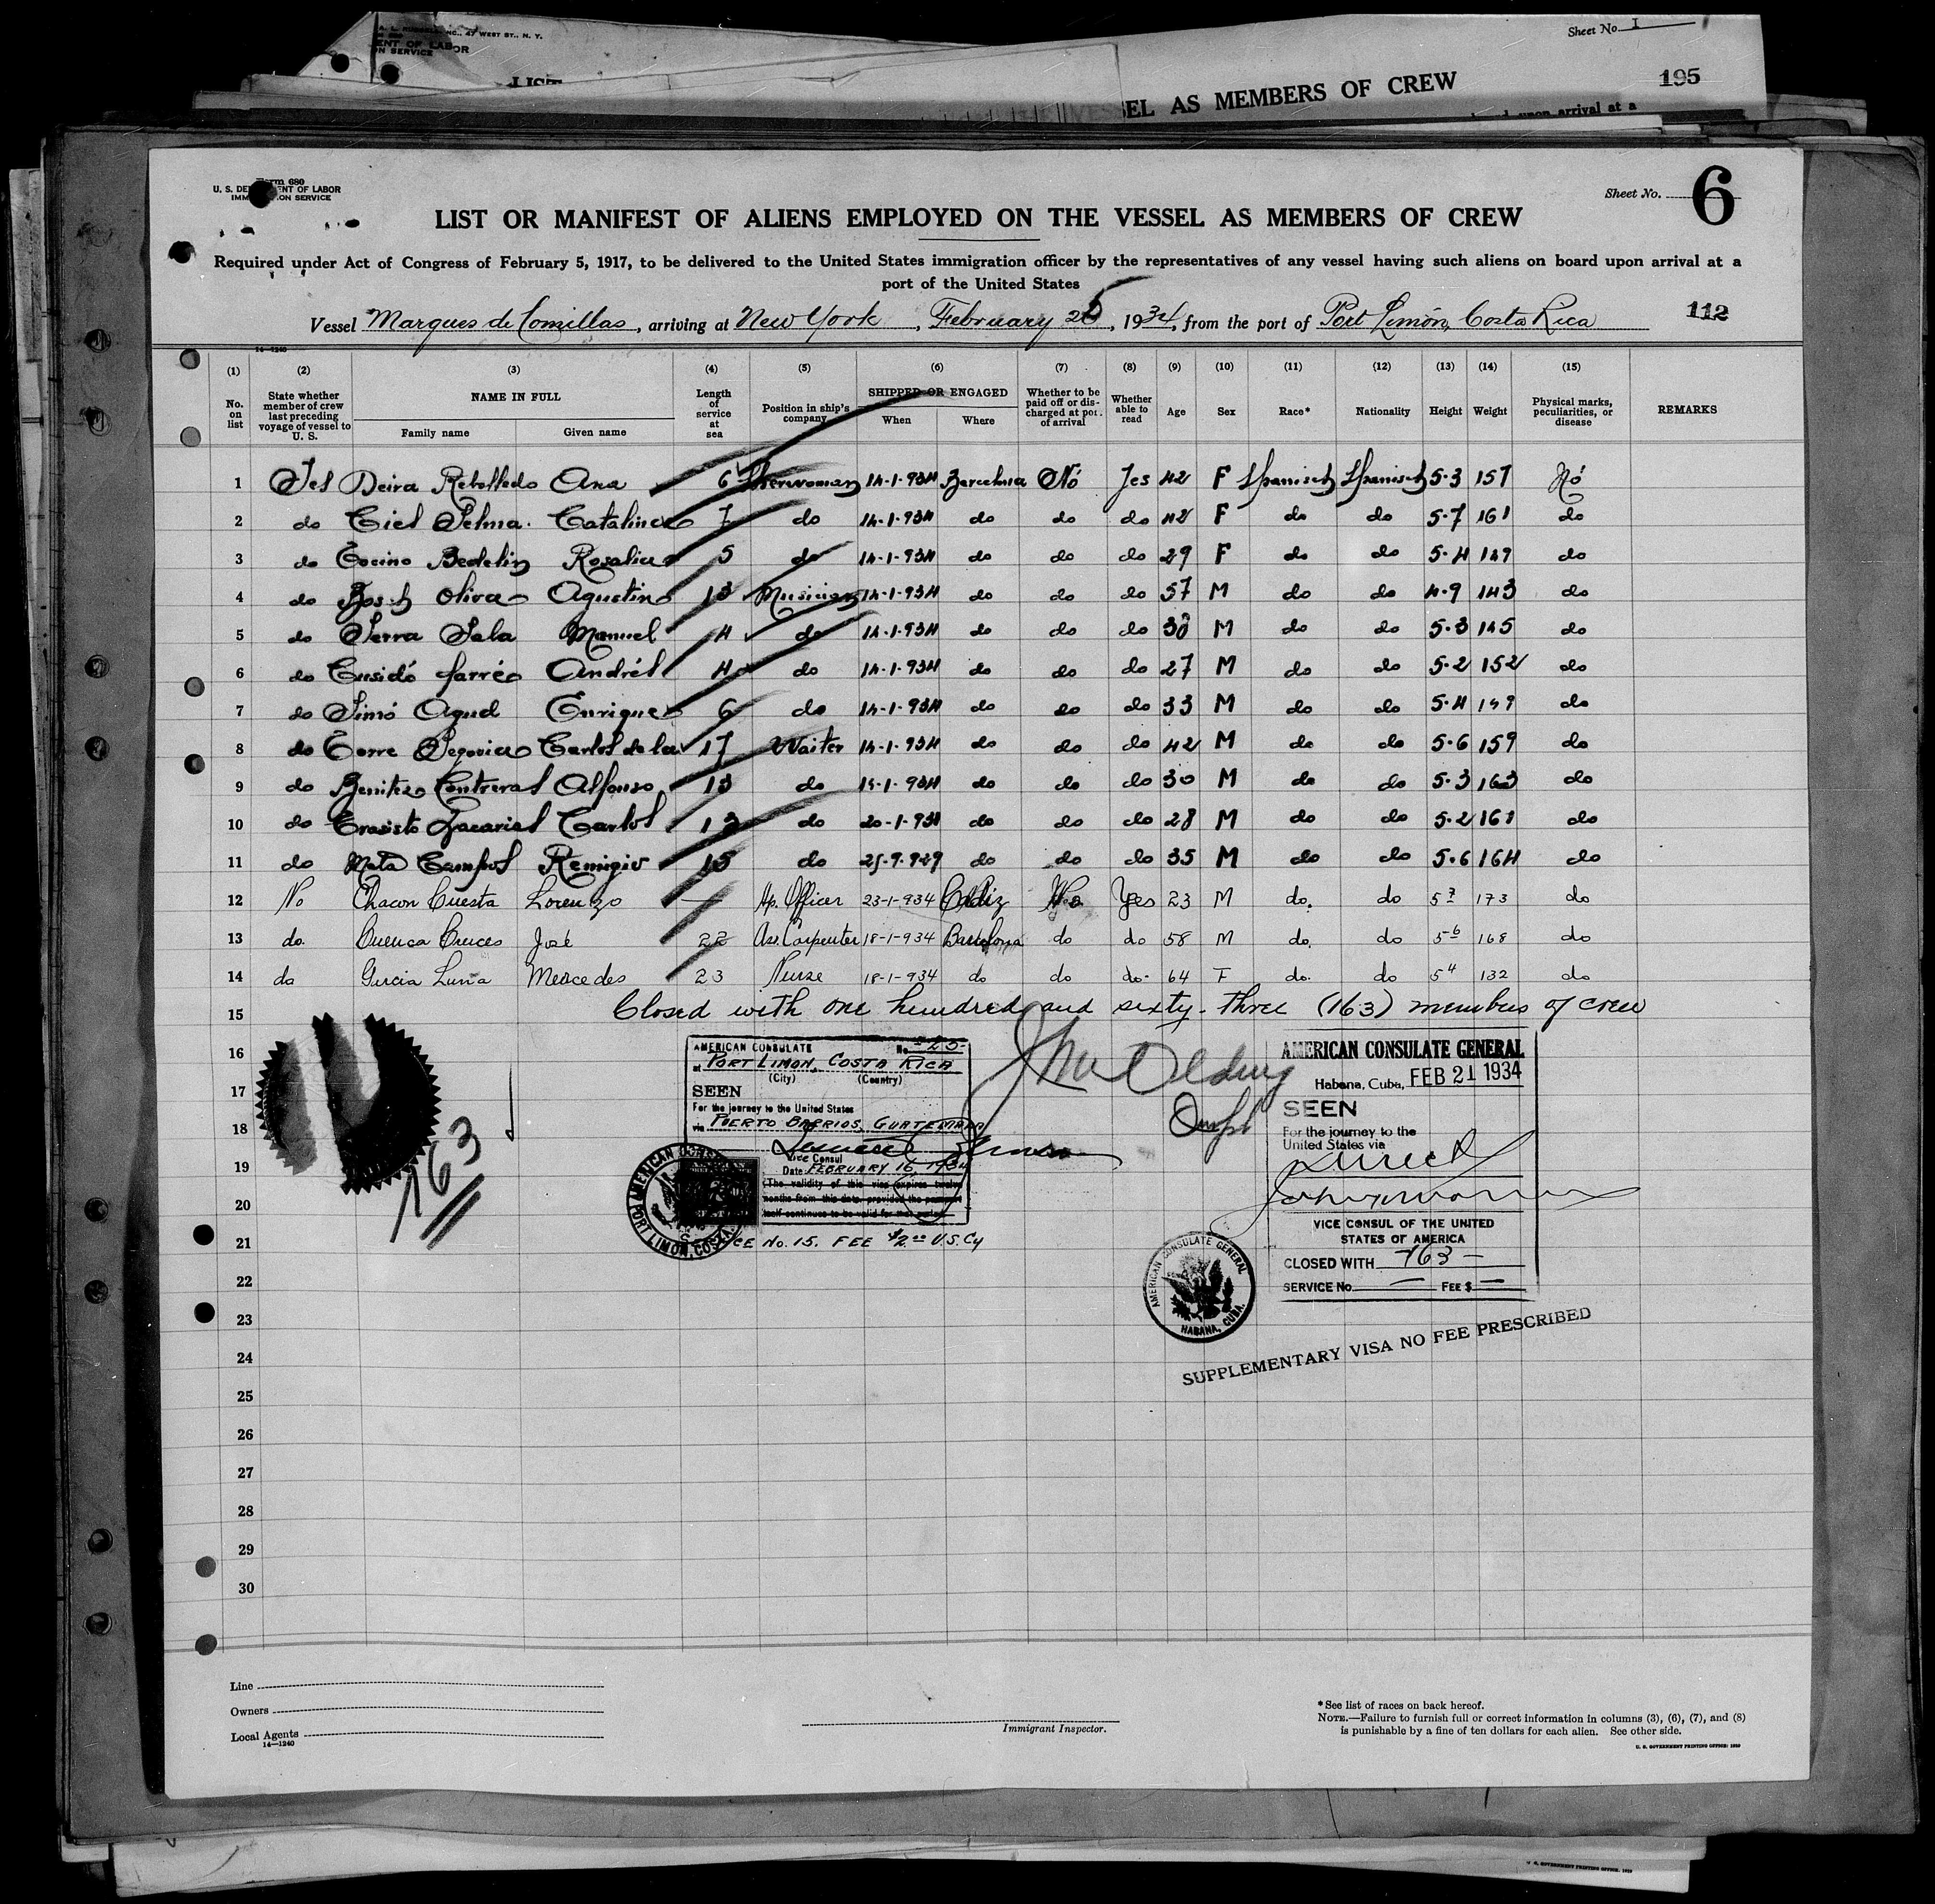 Sheet No. 1
A. L. RUSSELL, INC., 47 WEST ST., N. Y.
ENT OF LABOR
ON SERVICE
LIST
EL AS MEMBERS OF CREW
195
upon arrival at a
Form 680
U. S. DEPARTMENT OF LABOR
IMMIGRATION SERVICE
Sheet No. 6
LIST OR MANIFEST OF ALIENS EMPLOYED ON THE VESSEL AS MEMBERS OF CREW
Required under Act of Congress of February 5, 1917, to be delivered to the United States immigration officer by the representatives of any vessel having such aliens on board upon arrival at a
port of the United States
Vessel Marques de Comillas, arriving at New York, February 25, 1934, from the port of Port Limón, Costa Rica 112
14—1240
(1) (2) (3) (4) (5) (6) (7) (8) (9) (10) (11) (12) (13) (14) (15)
No. on list
State whether member of crew last preceding voyage of vessel to U. S.
NAME IN FULL
Family name Given name
Length of service at sea
Position in ship's company
SHIPPED OR ENGAGED
When Where
Whether to be paid off or discharged at port of arrival
Whether able to read
Age Sex Race* Nationality Height Weight
Physical marks, peculiarities, or disease
REMARKS
1 Yes Deira Rebolledo Ana 6 14-1-934 Barcelona Nó Yes 42 F Spanisch Spanisch 5·3 157 Nó
2 do Ciel Selma Catalina 7 do 14-1-934 do do do 42 F do do 5·7 161 do
3 do Cocino Bedelin Rosalia 5 do 14-1-934 do do do 29 F do do 5·4 149 do
4 do Bosch Oliva Agustin 13 Musician 14-1-934 do do do 57 M do do 4·9 143 do
5 do Serra Sala Manuel 4 do 14-1-934 do do do 30 M do do 5·3 145 do
6 do Cusidó Farré Andrés 4 do 14-1-934 do do do 27 M do do 5·2 152 do
7 do Simó Agud Enrique 6 do 14-1-934 do do do 33 M do do 5·4 149 do
8 do Torre Segovia Carlos de la 17 Waiter 14-1-934 do do do 42 M do do 5·6 159 do
9 do Benitez Contreras Alfonso 13 do 14-1-934 do do do 30 M do do 5·3 163 do
10 do Zacarias Carlos 13 do 20-1-934 do do do 28 M do do 5·2 161 do
11 do Mata Campos Remigio 15 do 25-9-929 do do do 35 M do do 5·6 164 do
12 No Chacon Cuesta Lorenzo — Ap. Officer 23-1-934 Cadiz No Yes 23 M do. do 5 7 173 do
13 do. Cuenca Cruces José 22 Ass. Carpenter 18-1-934 Barcelona do do 58 M do. do 5 6 168 do
14 do Garcia Luna Mercedes 23 Nurse 18-1-934 do do do. 64 F do. do 5 4 132 do
15 Closed with one hundred and sixty-three (163) members of crew
16
17
18
19
20
21
22
23
24
25
26
27
28
29
30
163
AMERICAN CONSULATE No. 25
at PORT LIMON, COSTA RICA
(City) (Country)
SEEN
For the journey to the United States
via PUERTO BARRIOS, GUATEMALA
Vice Consul
Date FEBRUARY 16, 1934
(The validity of this visa expires twelve
months from this date, provided the passport
itself continues to be valid for that period.
No. 15. FEE $2.00 U.S. Cy
AMERICAN CONSULATE
PORT LIMON, COSTA
AMERICAN CONSULATE GENERAL
Habana, Cuba, FEB 21 1934
SEEN
For the journey to the
United States via
Direct
VICE CONSUL OF THE UNITED
STATES OF AMERICA
CLOSED WITH 163 —
SERVICE No. — FEE $ —
AMERICAN CONSULATE GENERAL
HABANA, CUBA.
SUPPLEMENTARY VISA NO FEE PRESCRIBED
Line
Owners
Local Agents
14—1240
Immigrant Inspector.
*See list of races on back hereof.
NOTE.—Failure to furnish full or correct information in columns (3), (6), (7), and (8)
is punishable by a fine of ten dollars for each alien. See other side.
U. S. GOVERNMENT PRINTING OFFICE: 1929
U. S. GOVERNMENT PRINTING OFFICE: 1929